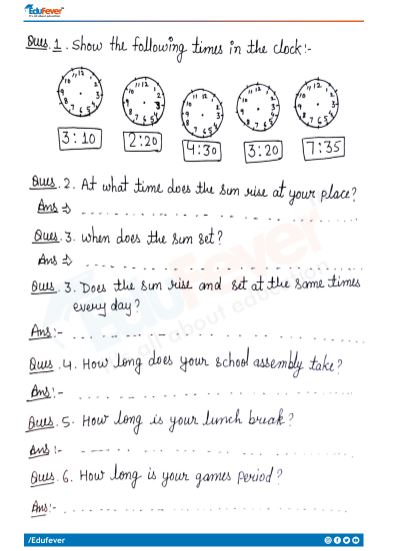 EduFever
It's all about education
Ques. 1. Show the following times in the clock:-
3:10 2:20 4:30 3:20 7:35
Ques. 2. At what time does the sun rise at your place?
Ans ⇒
Ques. 3. When does the sun set?
Ans ⇒
Ques. 3. Does the sun rise and set at the same times
every day?
Ans:-
Ques. 4. How long does your school assembly take?
Ans:-
Ques. 5. How long is your lunch break?
Ans:-
Ques. 6. How long is your games period?
Ans:-
/Edufever